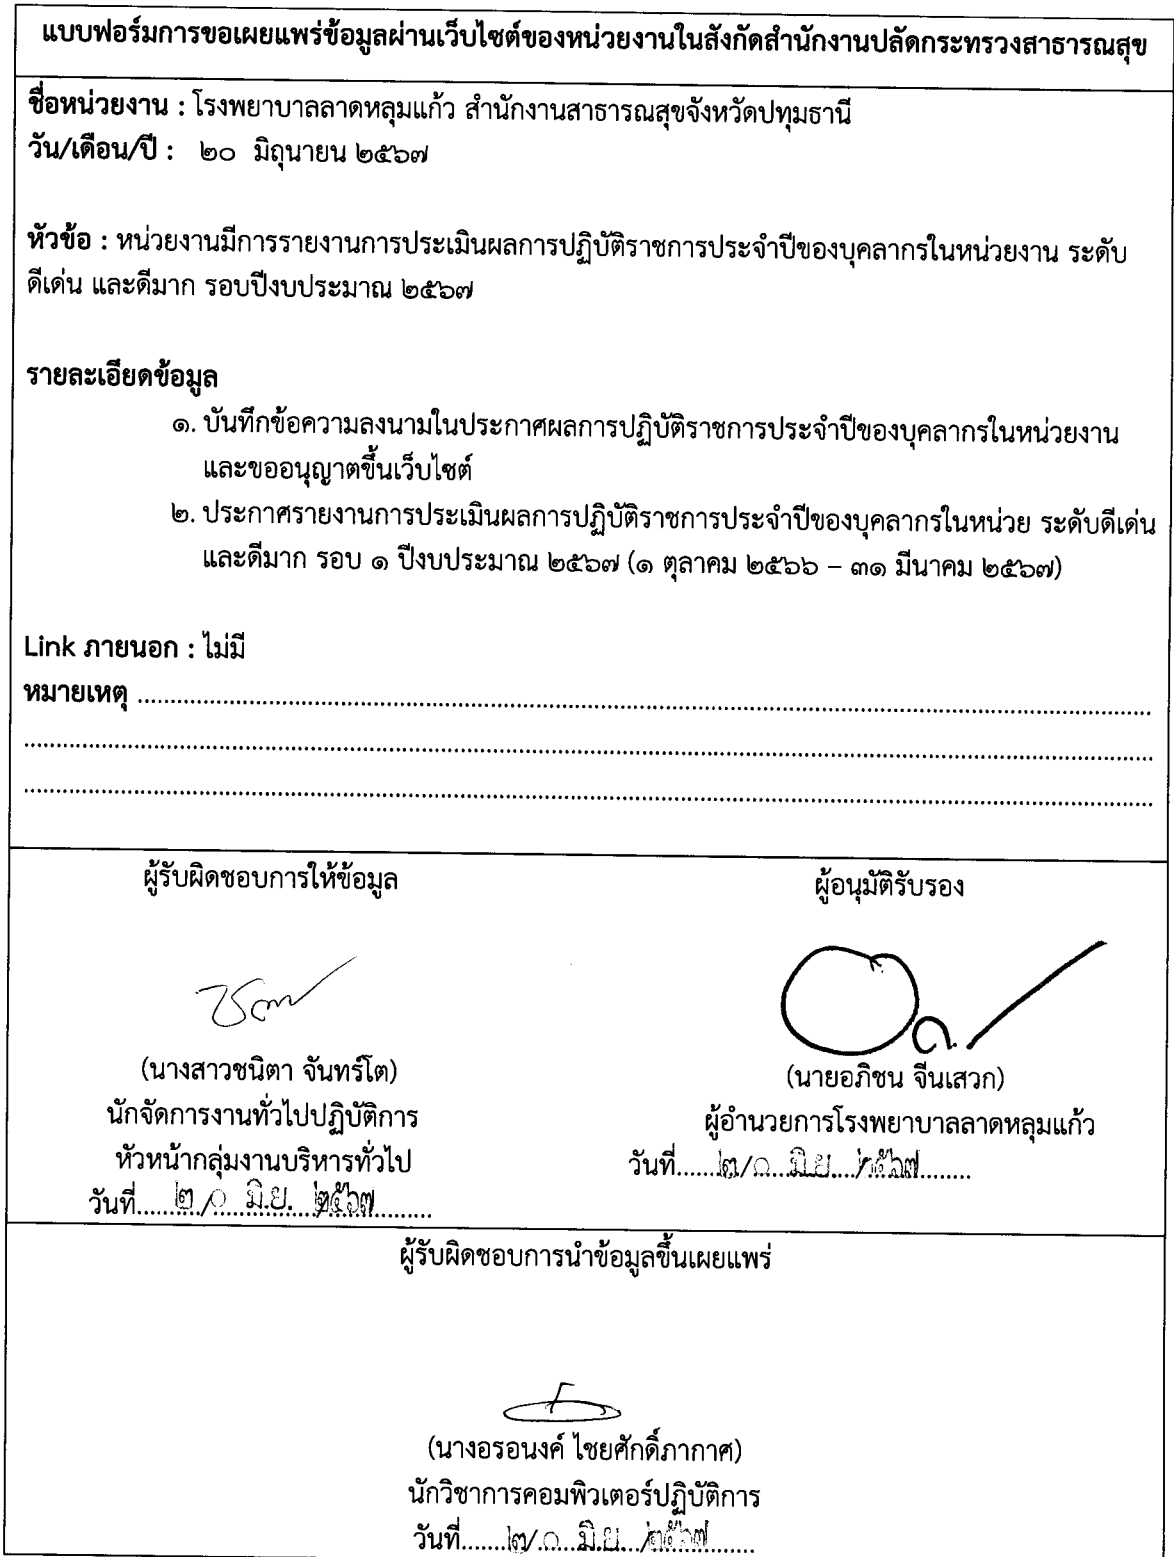 แบบฟอร์มการขอเผยแพร่ข้อมูลผ่านเว็บไซต์ของหน่วยงานในสังกัดสำนักงานปลัดกระทรวงสาธารณสุข
ชื่อหน่วยงาน : โรงพยาบาลลาดหลุมแก้ว สำนักงานสาธารณสุขจังหวัดปทุมธานี
วัน/เดือน/ปี : ๒๐ มิถุนายน ๒๕๖๗
หัวข้อ : หน่วยงานมีการรายงานการประเมินผลการปฏิบัติราชการประจำปีของบุคลากรในหน่วยงาน ระดับ
ดีเด่น และดีมาก รอบปีงบประมาณ ๒๕๖๗
รายละเอียดข้อมูล
๑. บันทึกข้อความลงนามในประกาศผลการปฏิบัติราชการประจำปีของบุคลากรในหน่วยงาน
และขออนุญาตขึ้นเว็บไซต์
๒. ประกาศรายงานการประเมินผลการปฏิบัติราชการประจำปีของบุคลากรในหน่วย ระดับดีเด่น
และดีมาก รอบ ๑ ปีงบประมาณ ๒๕๖๗ (๑ ตุลาคม ๒๕๖๖ – ๓๑ มีนาคม ๒๕๖๗)
Link ภายนอก : ไม่มี
หมายเหตุ ................................................................
................................................................
................................................................
ผู้รับผิดชอบการให้ข้อมูล
(นางสาวชนิตา จันทร์โต)
นักจัดการงานทั่วไปปฏิบัติการ
หัวหน้ากลุ่มงานบริหารทั่วไป
วันที่......๒/๐ มิ.ย. ๒๕๖๗......
ผู้อนุมัติรับรอง
(นายอภิชน จีนเสวก)
ผู้อำนวยการโรงพยาบาลลาดหลุมแก้ว
วันที่......๒/๐ มิ.ย. /๒๕๖๗......
ผู้รับผิดชอบการนำข้อมูลขึ้นเผยแพร่
(นางอรอนงค์ ไชยศักดิ์ภากาศ)
นักวิชาการคอมพิวเตอร์ปฏิบัติการ
วันที่......๒/๐ มิ.ย. /๒๕๖๗......